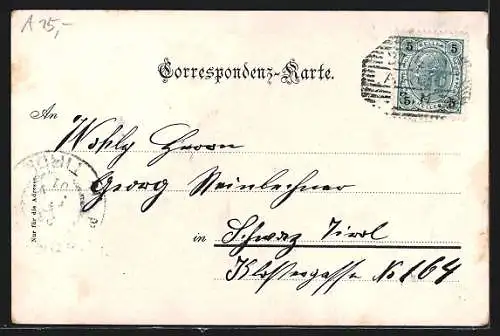 A 25,-
5 5
Correspondenz-Karte.
5 5
An
Wohlg Herrn
Georg Steinlechner
TIROL
Nur für die Adresse.
in Schwaz Tirol
Klostergasse No 164